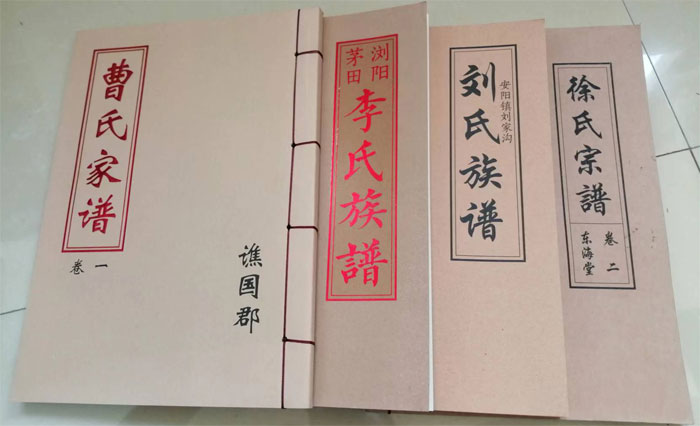 曹氏家谱
卷一
谯国郡
浏阳
茅田
李氏族譜
安阳镇刘家沟
刘氏族谱
徐氏宗譜
卷二
东海堂